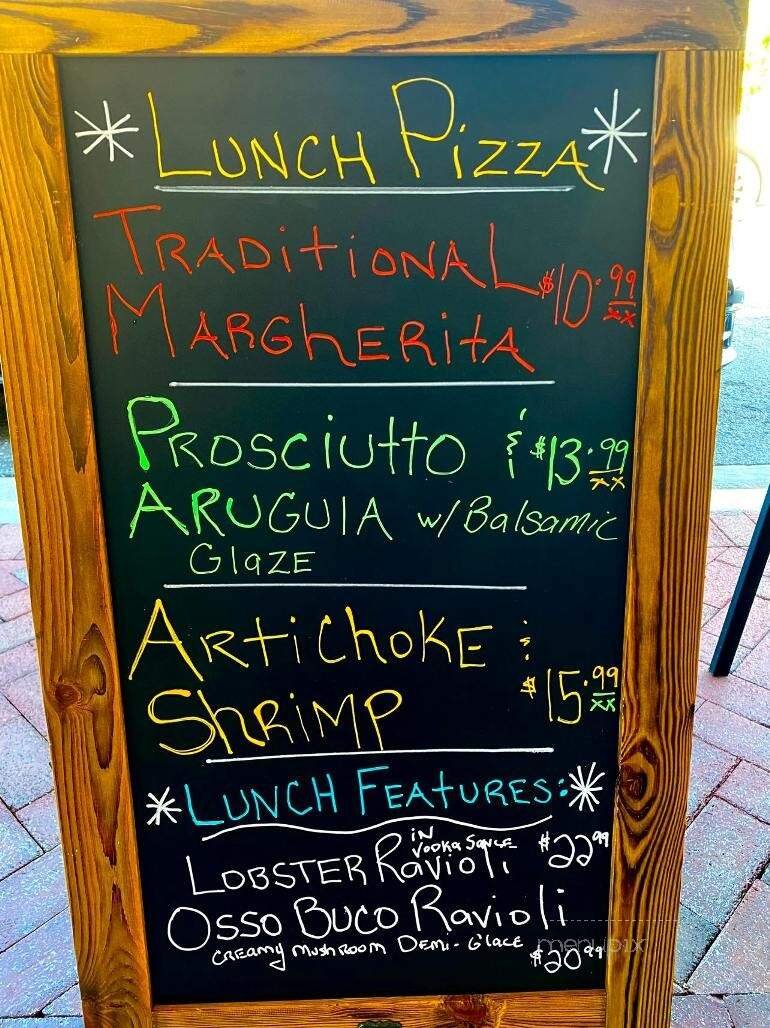 * LUNCH PIZZA *
TRADITIONAL
MARGHERITA $10.99
xx
PROSCIUTTO & $13.99
xx
ARUGUIA w/ Balsamic
GlaZE
ARTICHOKE &
SHRIMP $15.99
xx
* LUNCH FEATURES: *
LOBSTER RAVIOLI IN VODKA SAUCE $22.99
OSSO BUCO RAVIOLI
CREAMY MUSHROOM DEMI-GLACE $20.99
menupix